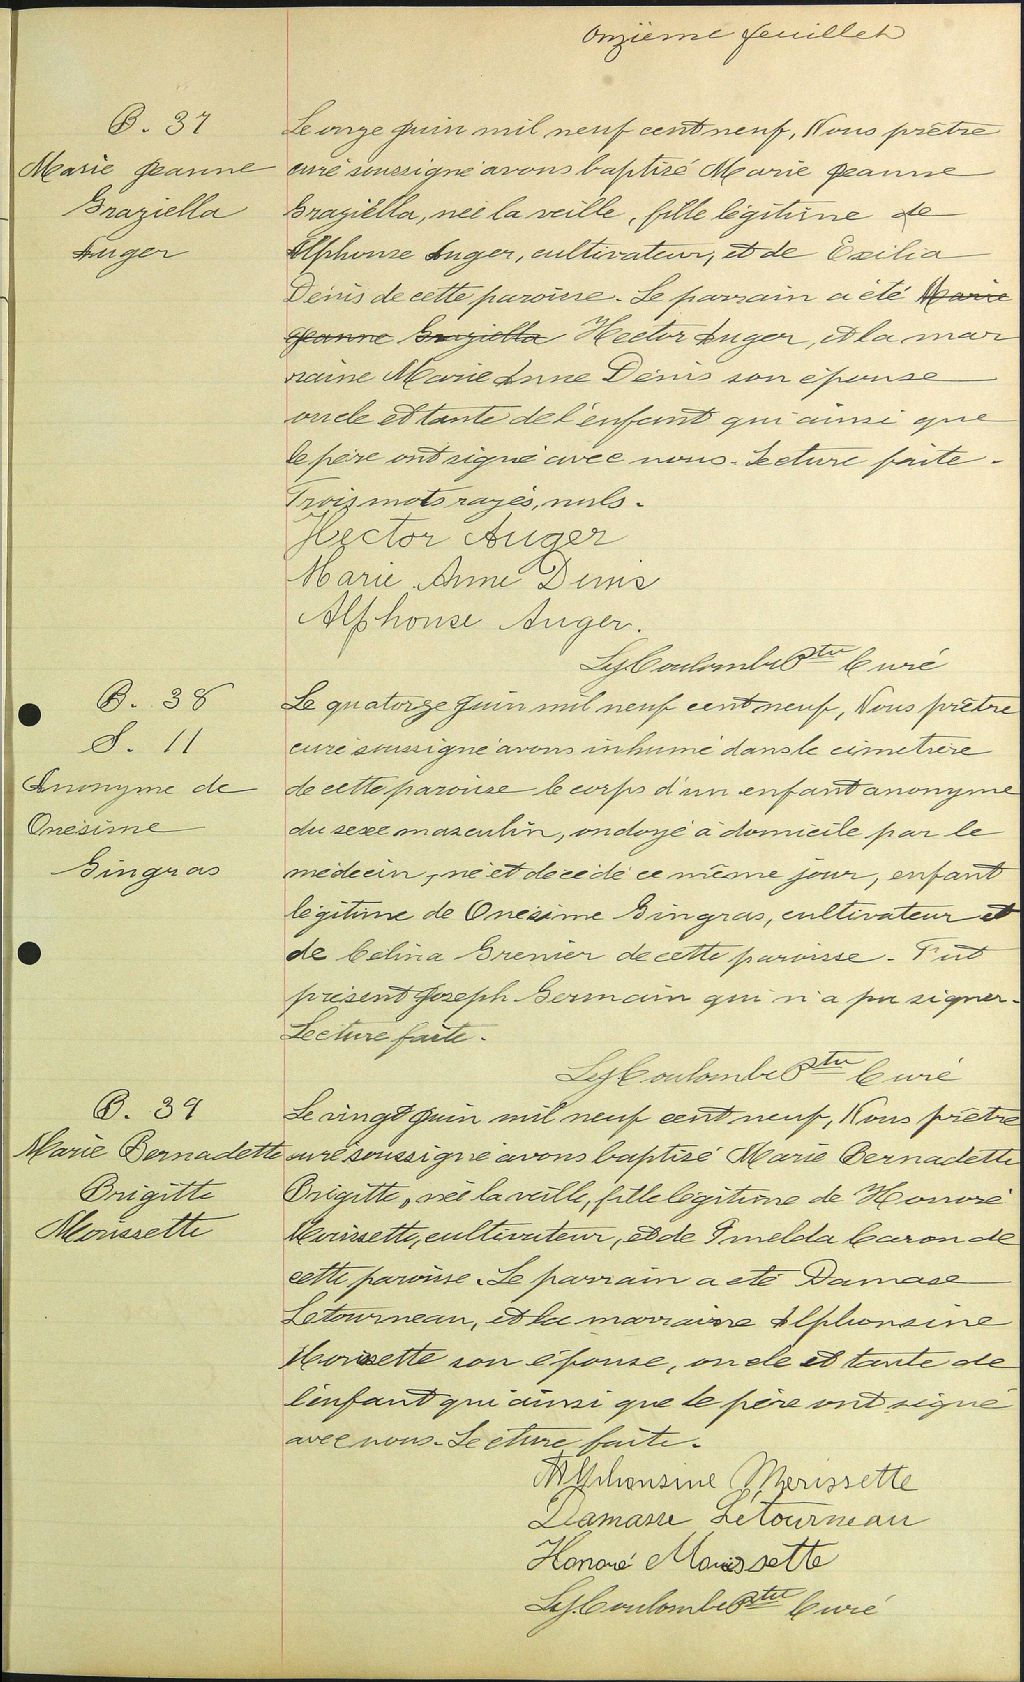 onzième feuillet
B. 37
Marie Jeanne
Graziella
Auger
Le onze juin mil neuf cent neuf, Nous prêtre
curé soussigné avons baptisé Marie Jeanne
Graziella, née la veille, fille légitime de
Alphonse Auger, cultivateur, et de Exilia
Denis de cette paroisse. Le parrain a été Marie
Jeanne Graziella Hector Auger, et la mar
raine Marie Anne Denis son épouse
oncle et tante de l'enfant qui ainsi que
le père ont signé avec nous. Lecture faite.
Trois mots rayés, nuls.
Hector Auger
Marie Anne Denis
Alphonse Auger.
Coulombe Ptre Curé
B. 38
S. 11
Anonyme de
Onésime
Gingras
Le quatorze juin mil neuf cent neuf, Nous prêtre
curé soussigné avons inhumé dans le cimetière
de cette paroisse le corps d'un enfant anonyme
du sexe masculin, ondoyé à domicile par le
médecin, né et décédé ce même jour, enfant
légitime de Onésime Gingras, cultivateur et
de Célina Grenier de cette paroisse. Fut
présent Joseph Germain qui n'a pu signer.
Lecture faite.
Coulombe Ptre Curé
B. 39
Marie Bernadette
Brigitte
Morissette
Le vingt juin mil neuf cent neuf, Nous prêtre
curé soussigné avons baptisé Marie Bernadette
Brigitte, née la veille, fille légitime de Honoré
Morissette, cultivateur, et de Imelda Caron de
cette paroisse. Le parrain a été Damase
Letourneau, et la marraine Alphonsine
Morissette son épouse, oncle et tante de
l'enfant qui ainsi que le père ont signé
avec nous. Lecture faite.
Alphonsine Morissette
Damase Létourneau
Honoré Morissette
Coulombe Ptre Curé